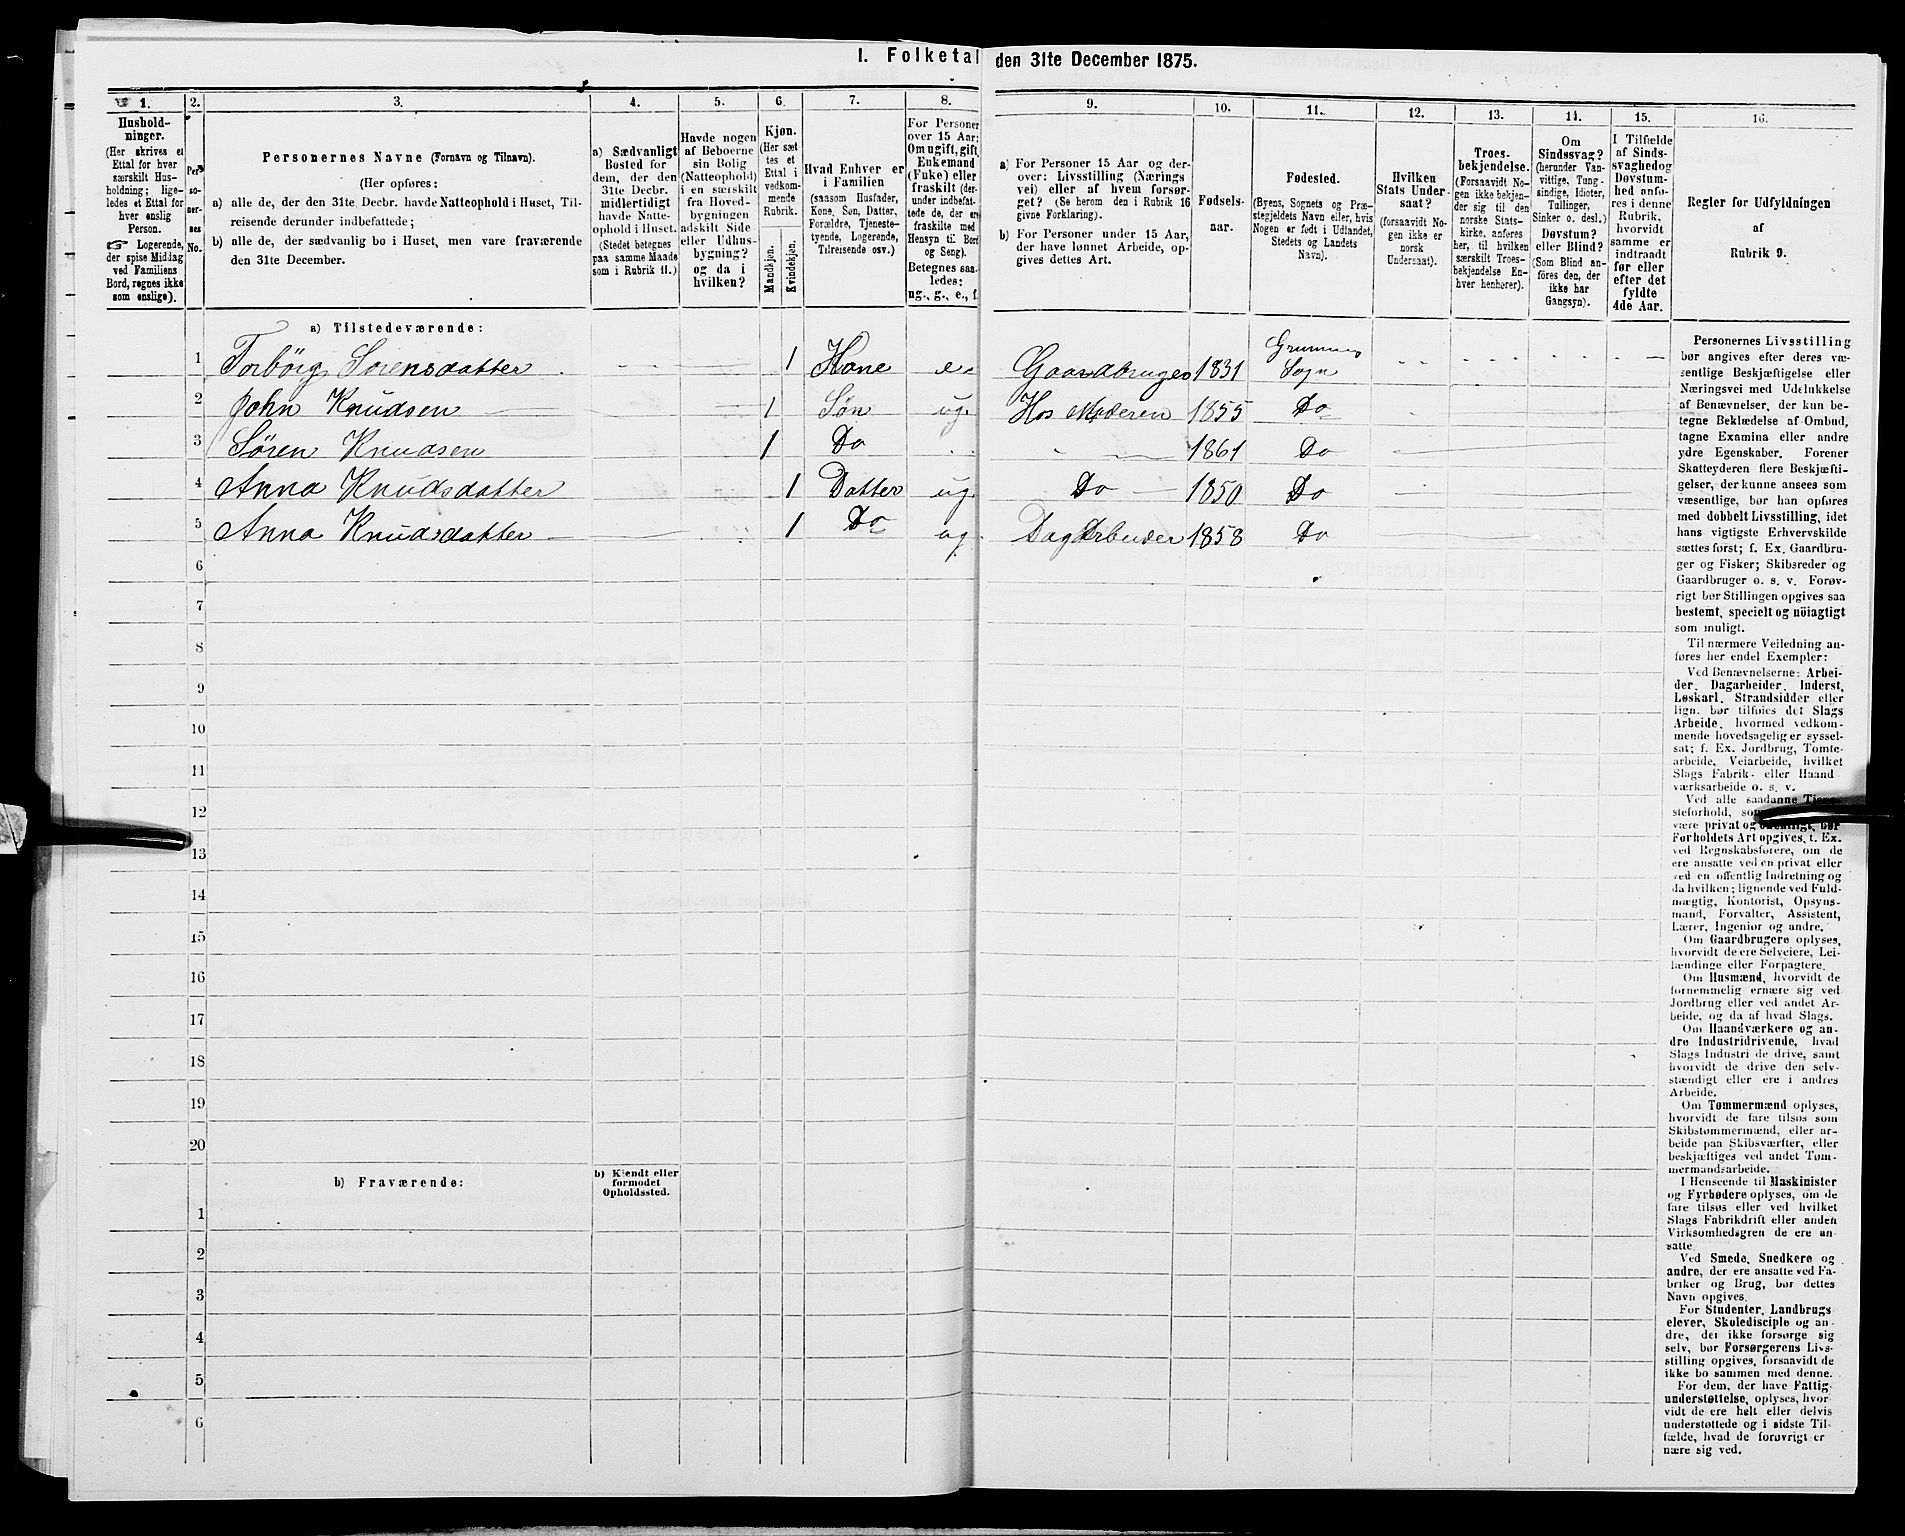 I. Folketal den 31te December 1875.
1. 2. 3. 4. 5. 6. 7. 8. 9. 10. 11. 12. 13. 14. 15. 16.
Hushold-
ninger.
(Her skrives et
Ettal for hver
særskilt Hus-
holdning; lige-
ledes et Ettal for
hver enslig
Person.
☞ Logerende,
der spise Middag
ved Familiens
Bord, regnes ikke
som enslige).
Per-
so-
ner-
nes
No.
Personernes Navne (Fornavn og Tilnavn).
(Her opføres:
a) alle de, der den 31te Decbr. havde Natteophold i Huset, Til-
reisende derunder indbefattede;
b) alle de, der sædvanlig bo i Huset, men vare fraværende
den 31te December.
a) Sædvanligt
Bosted for
dem, der den
31te Decbr.
midlertidigt
havde Natte-
ophold i Huset.
(Stedet betegnes
paa samme Maade
som i Rubrik 11.)
Havde nogen
af Beboerne
sin Bolig
(Natteophold)
i en særskilt
fra Hoved-
bygningen
adskilt Side
eller Udhus-
bygning?
og da i
hvilken?
Kjøn.
(Her sæt
tes et
Ettal i
vedkom-
mende
Rubrik.
Mandkjøn.
Kvindekjøn.
Hvad Enhver er
i Familien
(saasom Husfader,
Kone, Søn, Datter,
Forældre, Tjeneste-
tyende, Logerende,
Tilreisende osv.).
For Personer
over 15 Aar:
Om ugift, gift,
Enkemand
(Enke) eller
fraskilt (der-
under indbefat-
tede de, der ere
fraskilte med
Hensyn til Bord
og Seng).
Betegnes saa-
ledes:
ug., g., e., f.
a) For Personer 15 Aar og der-
over: Livsstilling (Nærings
vei) eller af hvem forsør-
get? (Se herom den i Rubrik 16
givne Forklaring).
b) For Personer under 15 Aar,
der have lønnet Arbeide, op-
gives dettes Art.
Fødsels-
aar.
Fødested.
(Byens, Sognets og Præ-
stegjeldets Navn eller, hvis
Nogen er født i Udlandet,
Stedets og Landets
Navn).
Hvilken
Stats Under-
saat?
(forsaavidt No-
gen ikke er
norsk
Undersaat).
Troes-
bekjendelse.
(Forsaavidt No-
gen ikke bekjen-
der sig til den
norske Stats-
kirke, anføres
her, til hvilken
særskilt Troes-
bekjendelse En-
hver henhører).
Om
Sindssvag?
(herunder Van-
vittige, Tung-
sindige, Idioter,
Tullinger,
Sinker o. desl.)
Døvstum?
eller Blind?
(Som Blind an-
føres den, der
ikke har
Gangsyn).
I Tilfælde
af Sinds-
svaghed og
Døvstum-
hed anfø-
res i denne
Rubrik,
hvorvidt
samme er
indtraadt
før eller
efter det
fyldte
4de Aar.
Regler for Udfyldningen
af
Rubrik 9.
a) Tilstedeværende:
1 Torbörg Sörensdatter 1 Kone e. Gaardbruger 1831 Sogn
2 John Knudsen 1 Søn ug. Hos Moderen 1855 Do
3 Søren Knudsen 1 Do 1861 Do
4 Anna Knudsdatter 1 Datter ug. Do 1850 Do
5 Anna Knudsdatter 1 Do ug. Dagarbeider 1858 Do
6
7
8
9
10
11
12
13
14
15
16
17
18
19
20
b) Fraværende:
b) Kjendt eller
formodet
Opholdssted.
1
2
3
4
5
6
Personernes Livsstilling
bør angives efter deres væ-
sentlige Beskjæftigelse eller
Næringsvei med Udelukkelse
af Benævnelser, der kun be-
tegne Beklædelse af Ombud,
tagne Examina eller andre
ydre Egenskaber. Forener
Skatteyderen flere Beskjæfti-
gelser, der kunne ansees som
væsentlige, bør han opføres
med dobbelt Livsstilling, idet
hans vigtigste Erhvervskilde
sættes først; f. Ex. Gaardbru-
ger og Fisker; Skibsreder og
Gaardbruger o. s. v. Forøv-
rigt bør Stillingen opgives saa
bestemt, specielt og nöiagtigt
som muligt.
Til nærmere Veiledning an-
føres her endel Exempler:
Ved Benævnelserne: Arbei-
der, Dagarbeider, Inderst,
Løskarl, Strandsidder eller
lign. bør tilføies det Slags
Arbeide, hvormed vedkom-
mende hovedsagelig er syssel-
sat; f. Ex. Jordbrug, Tomte-
arbeide, Veiarbeide, hvilket
Slags Fabrik- eller Haand
værksarbeide o. s. v.
Ved alle saadanne Tjene-
steforhold,
være privat og offentligt, bør
Forholdets Art opgives, t. Ex.
ved Regnskabsførere, om de
ere ansatte ved en privat eller
ved en offentlig Indretning og
da hvilken; lignende ved Fuld-
mægtig, Kontorist, Opsyns-
mand, Forvalter, Assistent,
Lærer, Ingeniør og andre.
Om Gaardbrugere oplyses,
hvorvidt de ere Selveiere, Lei-
lændinge eller Forpagtere.
Om Husmænd, hvorvidt de
fornemmelig ernære sig ved
Jordbrug eller ved andet Ar-
beide, og da af hvad Slags.
Om Haandværkere og an-
dre Industridrivende, hvad
Slags Industri de drive, samt
hvorvidt de drive den selv-
stændigt eller ere i andres
Arbeide.
Om Tømmermænd oplyses,
hvorvidt de fare tilsøs som
Skibstømmermænd, eller ar-
beide paa Skibsværfter, eller
beskjæftiges ved andet Tøm-
mermandsarbeide.
I Henseende til Maskinister
og Fyrbødere oplyses, om de
fare tilsøs eller ved hvilket
Slags Fabrikdrift eller anden
Virksomhedsgren de ere an-
satte.
Ved Smede, Snedkere og
andre, der ere ansatte ved Fa-
briker og Brug, bør dettes
Navn opgives.
For Studenter, Landbrugs
elever, Skoledisciple og an-
dre, der ikke forsørge sig
selv, bør Forsørgerens Livs-
stilling opgives, forsaavidt de
ikke bo sammen med denne.
For dem, der have Fattig-
understøttelse, oplyses, hvor-
vidt de ere helt eller delvis
understøttede og i sidste Til-
fælde, hvad de forøvrigt er
nære sig ved.